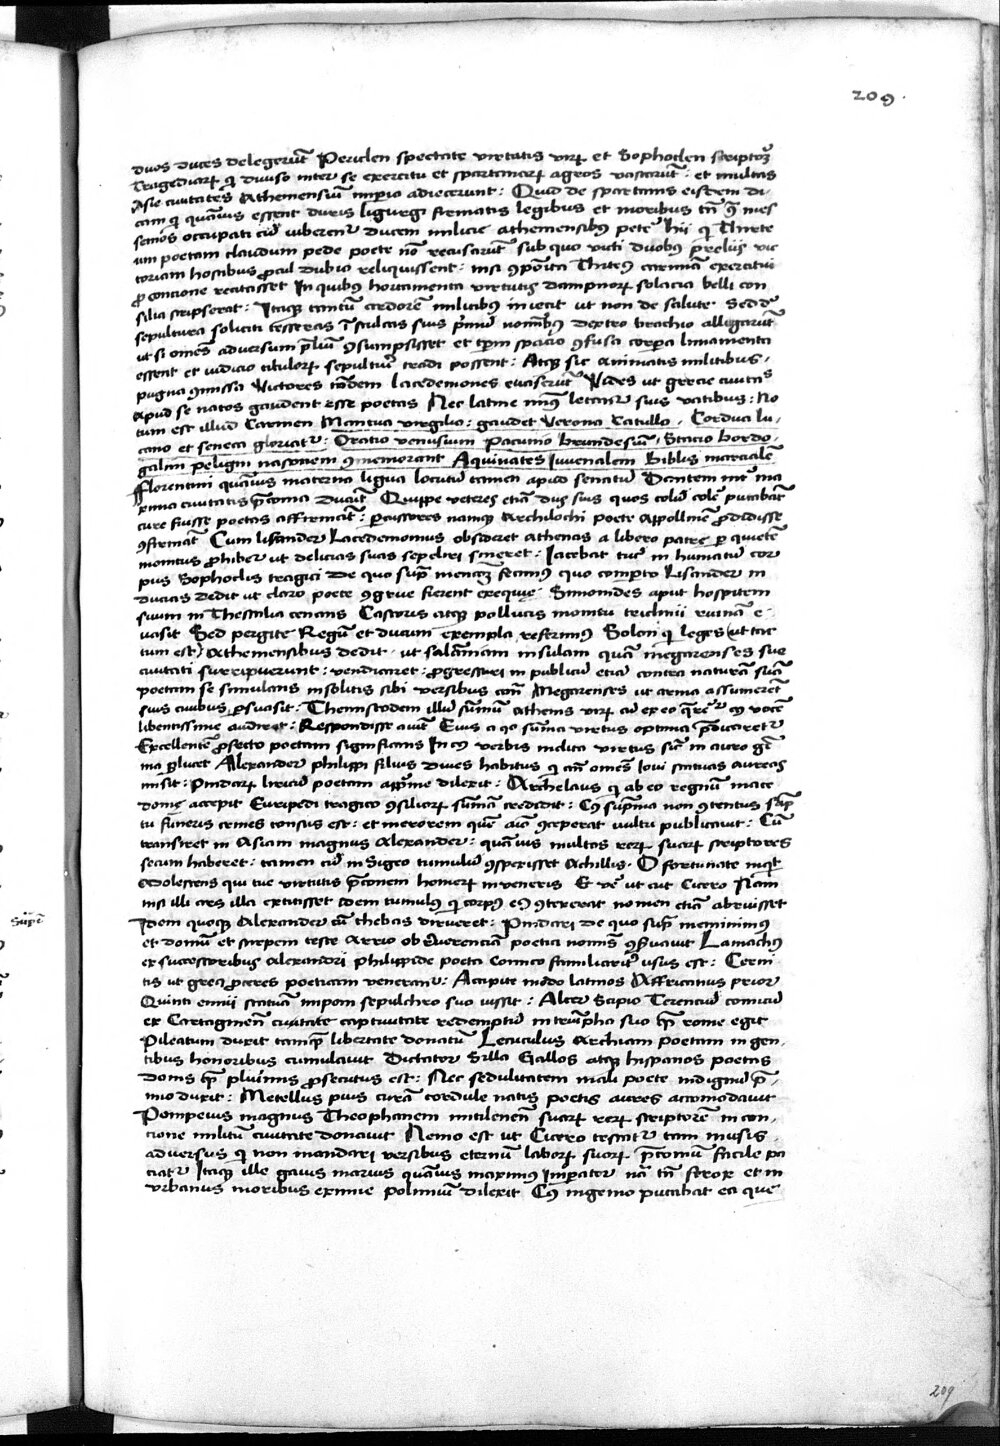 209.
duos duces delegerūt Periclen spectate virtutis virū et Sophoclen scriptorē
Tragediarꝝ qͥ diuiso inter se exercitu et spartanorꝝ agros vastarūt : et multas
Asie ciuitates Atheniensiū imperio adiecerunt : Quid de spartanis eisdem di
cam qͥ quāuis essent duris ligurgi firmatis legibus et moribus tn̄
senios occupati cū iuberent ducem milicie atheniensibus pete hii qͥ Thirte
um poetam claudum pede poete nō recusarūt sub quo victi duobus preliis vic
toriam hostibus procul dubio reliquissent : nisi ꝯpōita Thirteus carmina exercitui
ꝓ concione recitasset In quibus hortamenta virtutis dampnorꝝ solacia belli con
silia scripserat : Itaqꝫ tantū ardorē militibus iniecit ut non de salute sed de
sepultura soliciti tesseras īsculatas suis nominibus dextro brachio alligarūt
ut si omēs aduersum preliū ꝯsumpsisset et tpm spacio ꝯfusa corpa liniamenta
essent et iudicio titulorꝝ sepultur tradi possent : Atqꝫ sic animatis militibus.
pugna ꝯmissa Victores tādem lacedemones euaserūt Vides ut grecie ciuitas
apud se natos gaudent esse poetas Nec latine minus letant suis vatibus : No
tum est illud Carmen Mantua virgilio : gaudet Verona Catullo . Corduba lu
cano et seneca gloriatr : Oratio venusium Pacuuio brundesiū Stacio bordo.
galim peligni nasonem ꝯmemorant Aquinates Iuuenalem Biblus marcialē
Florentini quāuis materna ligua locutū tamen apud senatū Dantem int ma
xima ciuitatis ꝑconia ducūt Quippe veteres etiā dijs suis quos colud cole putabāt
cure fuisse poetas affirmāt : ꝑcussores namqꝫ Archilochi poete Appollinē prodidisse
ꝯfirmāt Cum lisander lacedemonius obsideret athenas a libero patre ꝑ quietē
monitus prohiber ut delicias suas sepeliri sineret : Iacebat tūc in humatū cor
pus Sophoclis tragici de quo supra mencionē fecimus quo comperto Lisander in
ducias dedit ut claro poete ꝯgrue fierent exequie : Simonides aput hospitem
suum in Thessalia cenans Castoris atqꝫ pollucis monitu triclinii ruinā e
uasit Sed pergite Regū et ducum exempla referimus Solon qͥ leges (ut tac
tum est) Atheniensibus dedit . ut salaminam insulam quā megarenses sue
ciuitati surripuerunt : vendicaret : progressurus in publicū etiā contra naturā suā
poetam se simulans insolitis sibi versibus contra Megarenses ut arma assumerēt
suis ciuibus ꝑsuasit : Themistodem illū sūmū athenis virū cū ex eo quereretur cuius vocē
libentissime audiret : Respondisse aiūt Eius a quo sūma virtus optima predicaretur
Excellentē profecto poetam significans In cuius verbis inclita virtus sicut in auro gē
ma perlucet Alexander philippi filius diues habitus qui cū omēs Ioui statuas aureas
misit : Pindarū liricū poetam apprime dilexit : Archelaus qͥ ab eo regnum mace
donie accepit Euripedi tragico ꝯsiliorꝝ sūmā credidit : Cuius suprema non ꝯtentus sūp
tu funeris crines tonsus est : et merorem quē aīo ꝯceperat vultu publicauit : Cū
transiret in Asiam magnus Alexander : quāuis multas rerꝝ suarꝝ scriptores
secum haberet : tamen cū in Sigeo tumulum ꝯsperisset Achillis : O fortunate inqͥt
Adolescens qui tue virtutis preconem homerꝝ inueneris Et vere ut ait Cicero Nam
nisi illi ars illa extitisset idem tumulus qͥ corpus eius ꝯtexerat nomen etiā abruisset
Idem quoqꝫ Alexander cū thebas dirueret : Pindari de quo supra meminimus
et domū et stirpem teste Arrio ob reuerenciā poetici nominis ꝯseruauit Lamachus
ex successoribus Alexandri Philippide poeta Comico familiaritr vsus est : Cerni
tis ut greci proceres poeticam venerant : Accipite modo latinos Affricanus prior
Quinti ennii statuā imponi sepulchro suo iussit : Alter Scipio Terenciū comicū
ex Cartaginēsi ciuitate captiuitate redemptū in triumpho suo quē rome egit
Pileatum duxit tamqꝫ libertate donatū Leculus Archiam Poetam in gen.
tibus honoribus cumulauit Dictator Silla Gallos atqꝫ hispanos poetas
donis quam plurimis prosecutus est : Nec sedulitatem mali poete indignū pre.
mio duxit : Metellus pius curā cordule natis poetis aures accomodauit
Pompeius magnus Theophanem mitilenēn suarꝝ rerꝝ scriptorē in con.
cione militū ciuitate donauit Nemo est ut Cicero testatur tam musis.
aduersus qͥ non mandari versibus eternū laborꝝ suorꝝ preconiū facile pa
ciatr Itaqꝫ ille gaius marius quāuis maximus Imperator nā tn̄ ferox et in
vrbanus moribus eximie polimium dilexit Cuius ingenio putabat ea que
209